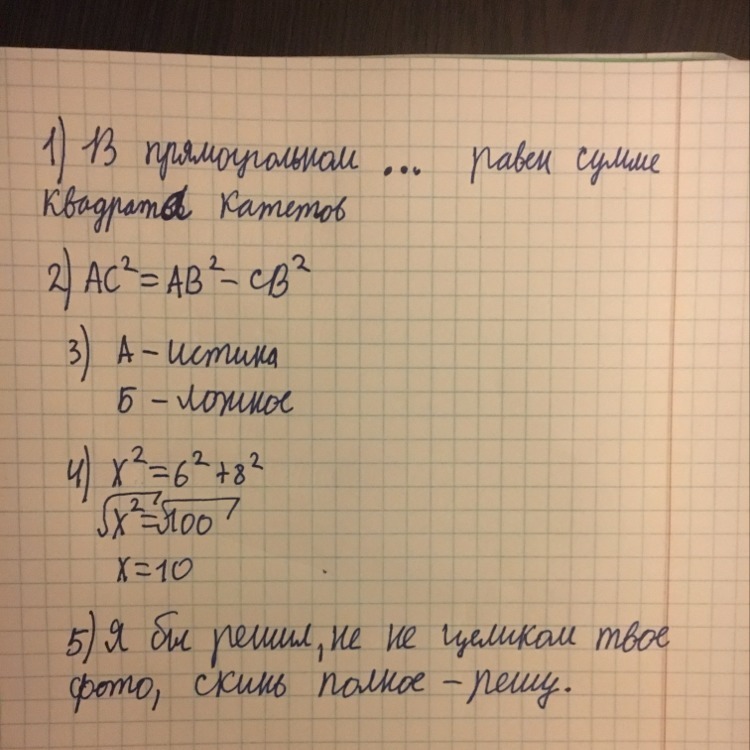 1) В прямоугольном ... равен сумме
квадратов катетов
2) AC²=AB²-CB²
3) А - истина
Б - ложное
4) x²=6²+8²
√x²=√100
x=10
5) Я бы решил, не не целиком твое
фото, скинь полное - решу.